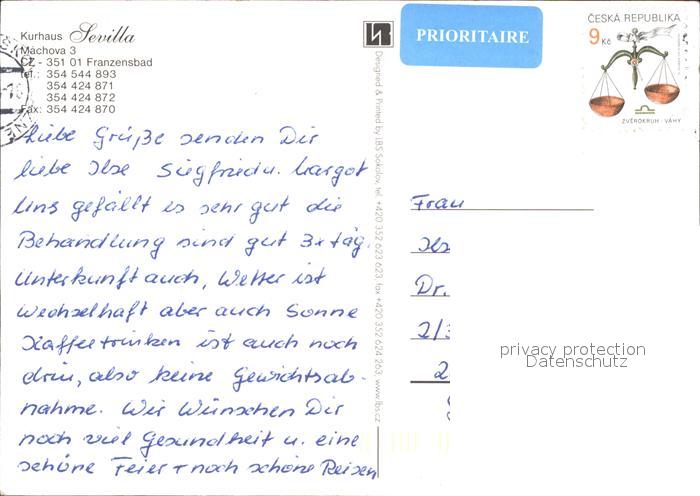 Kurhaus Sevilla
Máchova 3
CZ - 351 01 Franzensbad
tel.: 354 544 893
354 424 871
354 424 872
Fax: 354 424 870
Liebe Grüße senden Dir
liebe Ilse Siegfried u. Margot
Uns gefällt es sehr gut die
Behandlung sind gut 3x täg.
Unterkunft auch, Wetter ist
wechselhaft aber auch Sonne
Kaffeetrinken ist auch noch
drin, also keine Gewichtsab-
nahme. Wir Wünschen Dir
noch viel Gesundheit u. eine
schöne Feier + noch schöne Reisen
Designed & Printed by LBS Sokolov, tel. +420 352 623 623, fax +420 352 624 362, www.lbs.cz
PRIORITAIRE
ČESKÁ REPUBLIKA
9 Kč
ZVĚROKRUH - VÁHY
Frau
Ils
Dr.
2/3
2
privacy protection
Datenschutz